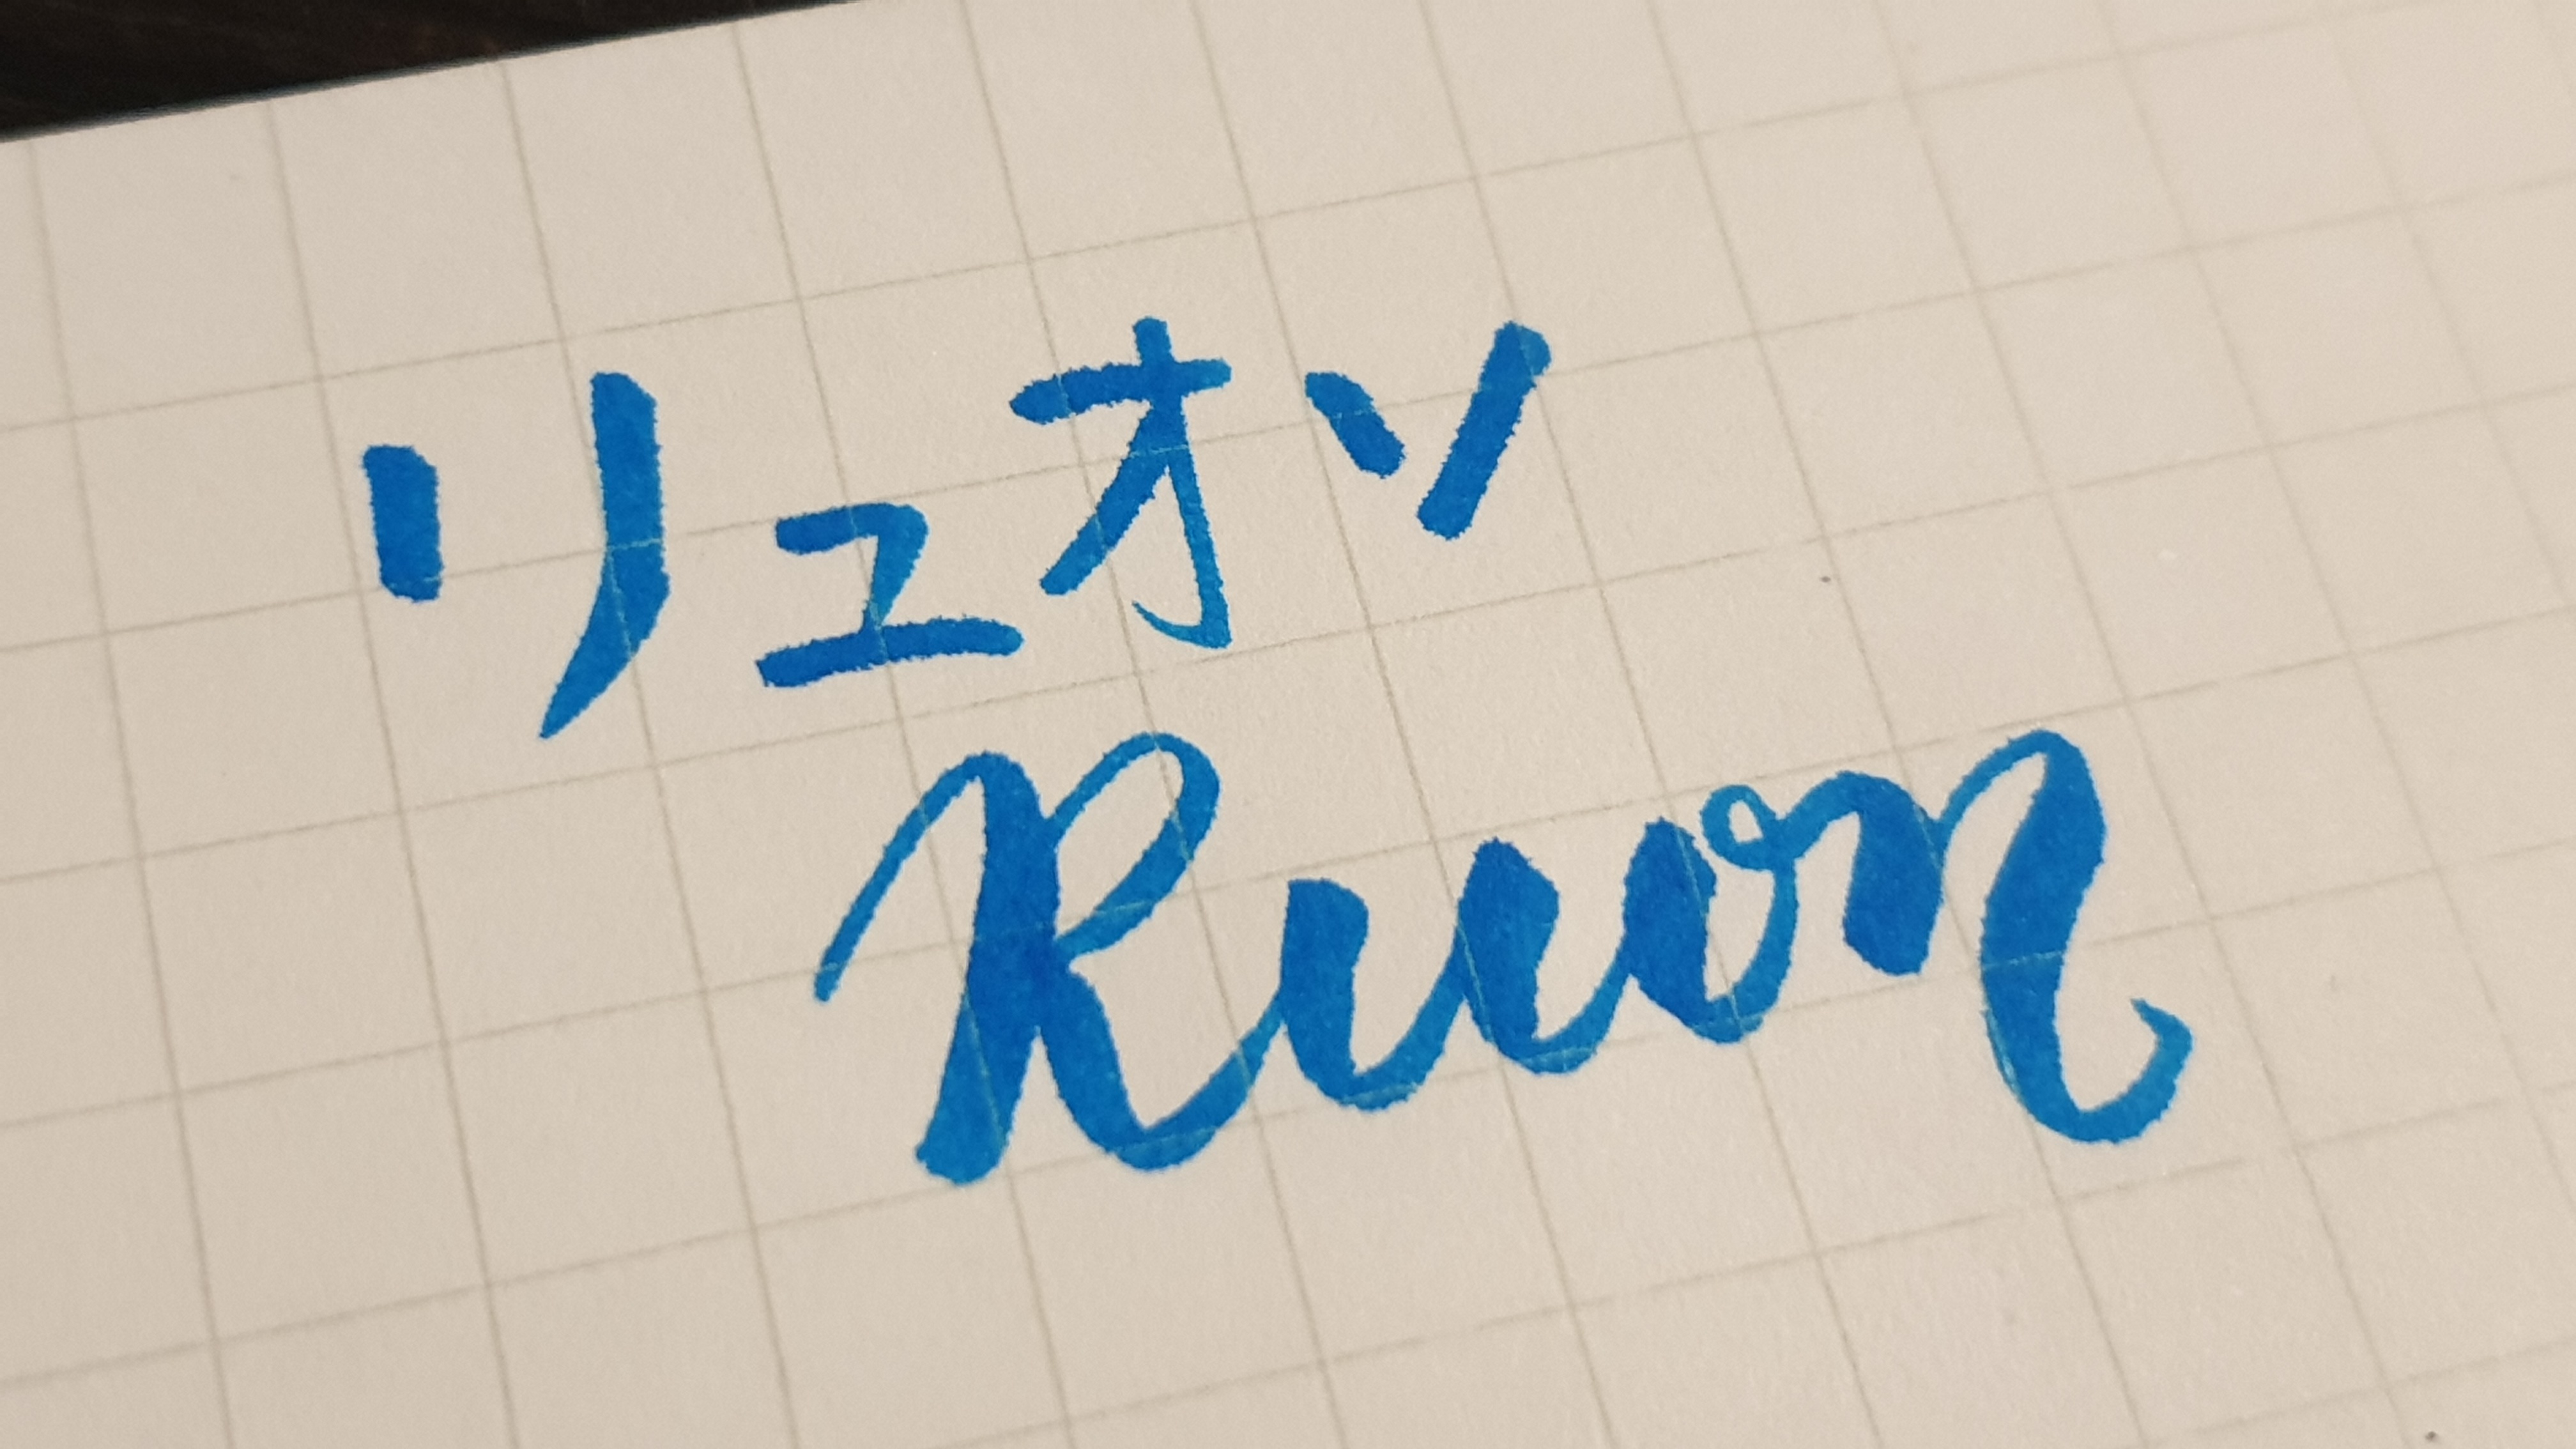 リュオソ
Ruon